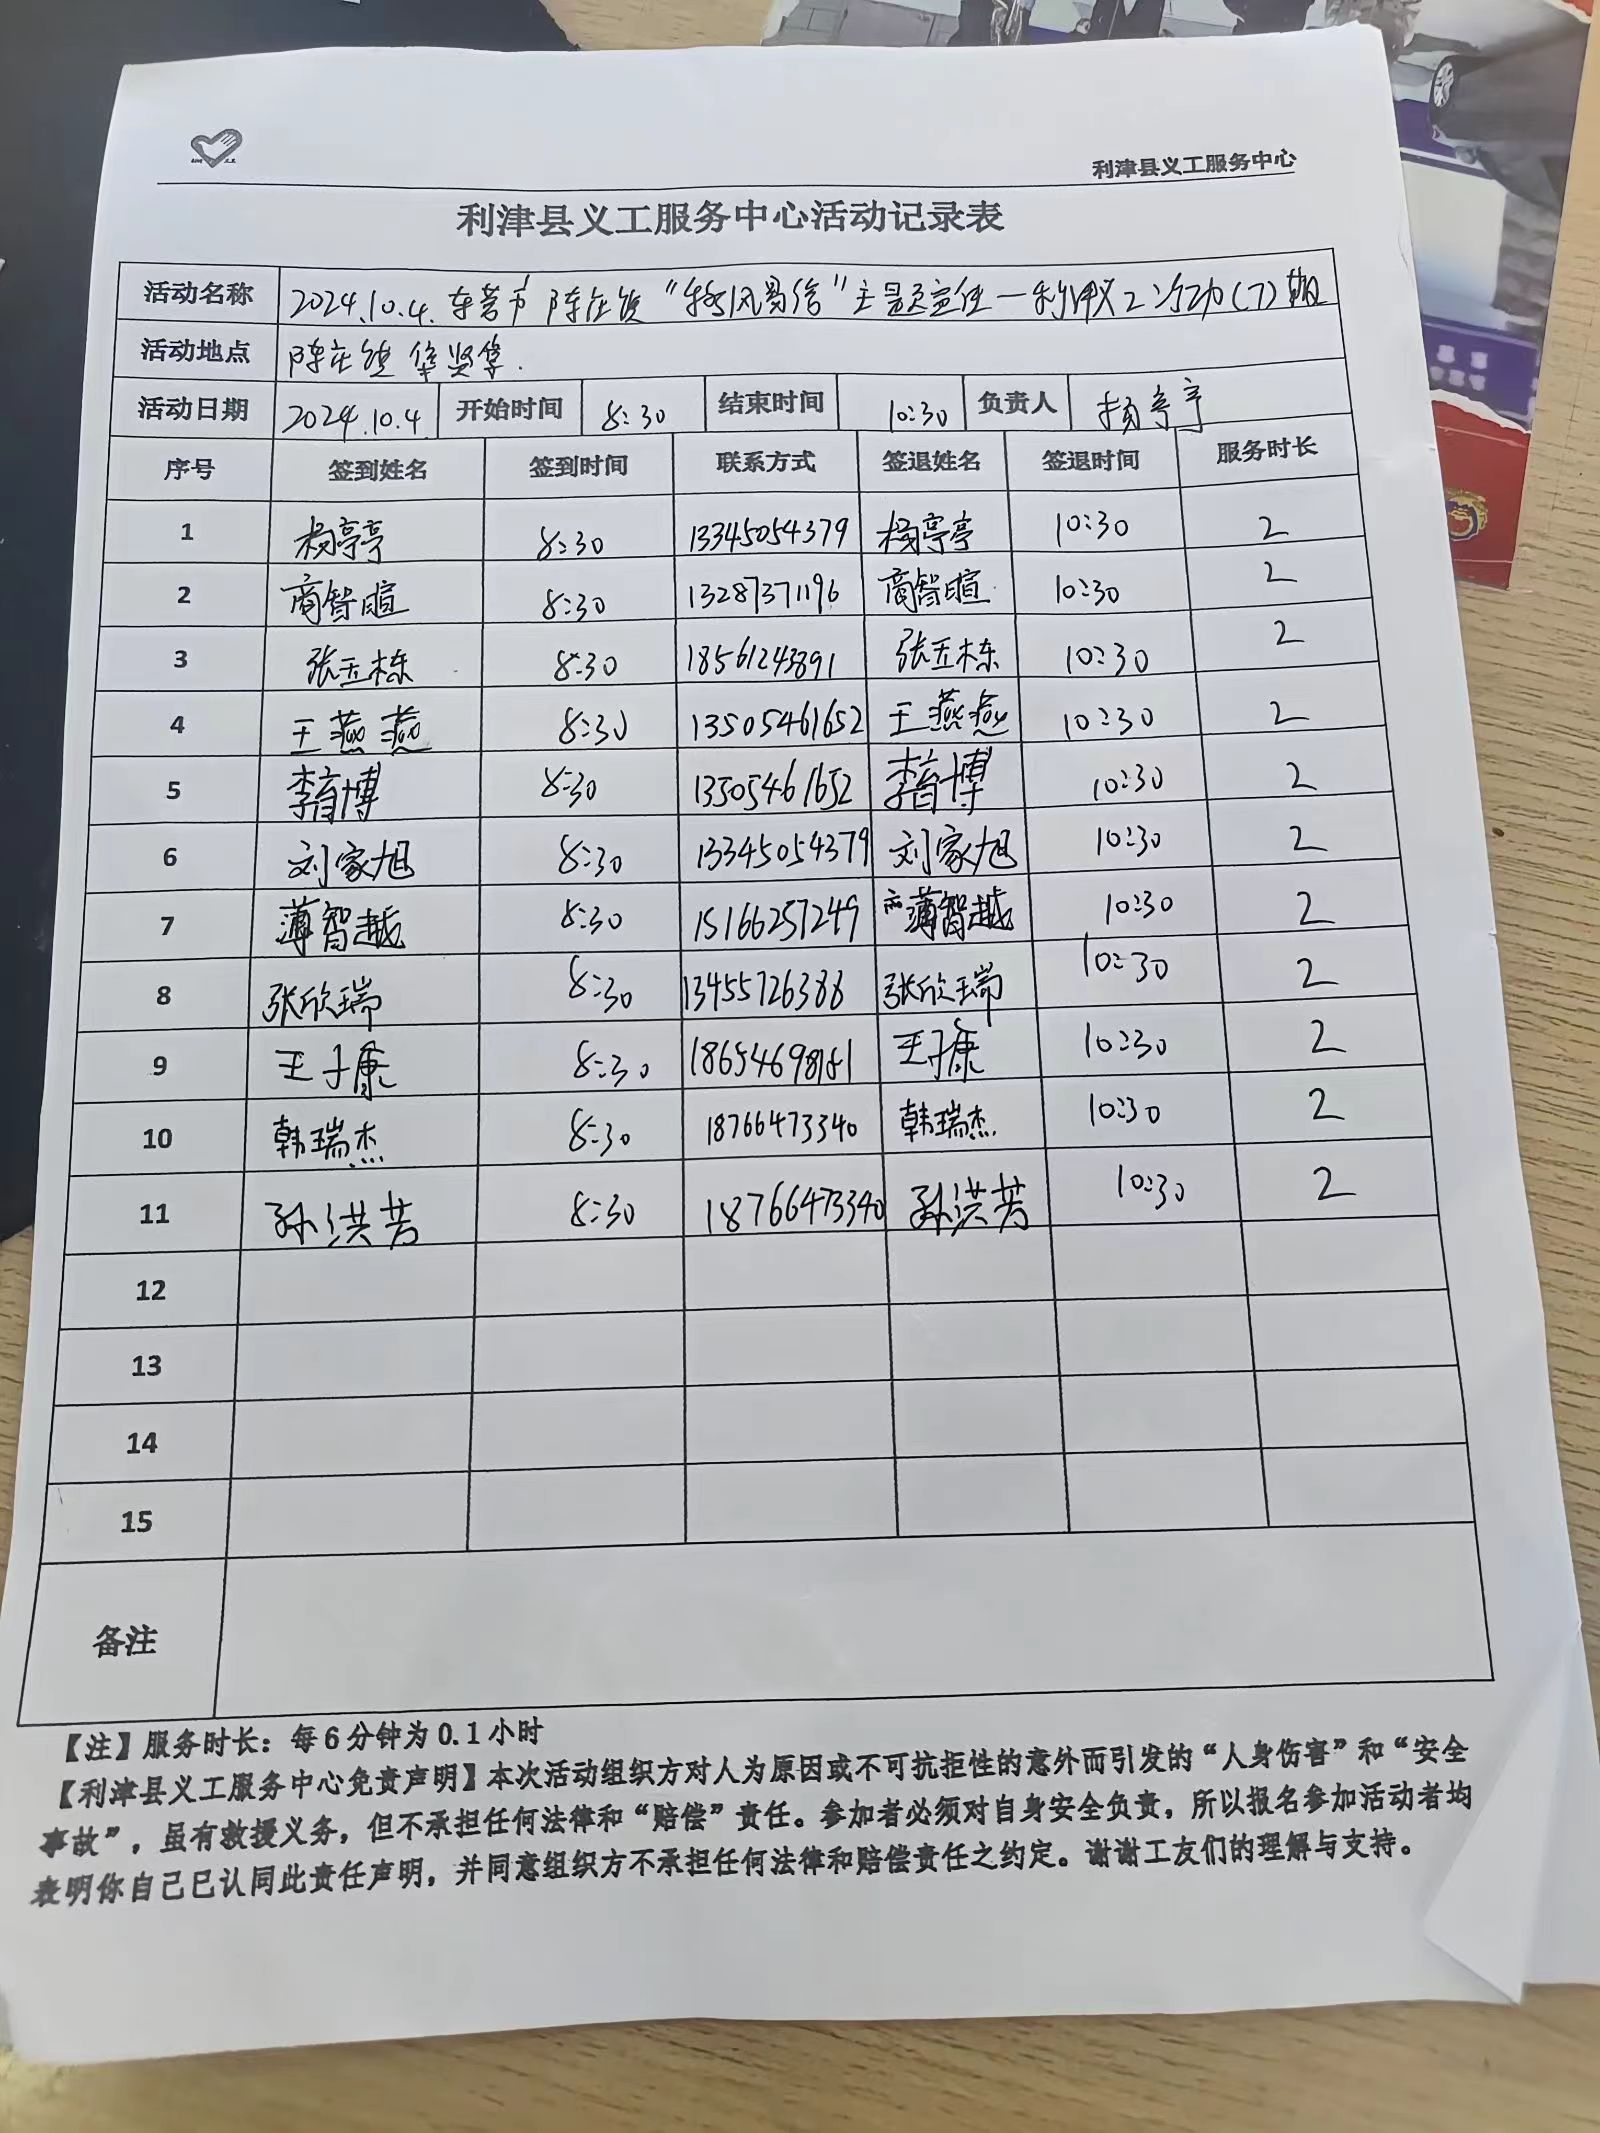 利津县义工服务中心
利津县义工服务中心活动记录表
活动名称 2024.10.4.东营市 陈庄镇 "移风易俗" 主题宣传一利津义工行动(7)期
活动地点 陈庄镇
活动日期 2024.10.4 开始时间 8:30 结束时间 10:30 负责人 杨亭亭
序号 签到姓名 签到时间 联系方式 签退姓名 签退时间 服务时长
1 杨亭亭 8:30 13345054379 杨亭亭 10:30 2
2 商智暄 8:30 13287371196 商智暄 10:30 2
3 张玉栋 8:30 18561243891 张玉栋 10:30 2
4 王燕燕 8:30 13505461652 王燕燕 10:30 2
5 李育博 8:30 13505461652 李育博 10:30 2
6 刘家旭 8:30 13345054379 刘家旭 10:30 2
7 薄智越 8:30 15166257249 薄智越 10:30 2
8 张欣瑞 8:30 13455726388 张欣瑞 10:30 2
9 王子康 8:30 王子康 10:30 2
10 韩瑞杰 8:30 18766473340 韩瑞杰 10:30 2
11 孙洪芳 8:30 18766473340 孙洪芳 10:30 2
12
13
14
15
备注
【注】服务时长：每6分钟为0.1小时
【利津县义工服务中心免责声明】本次活动组织方对人为原因或不可抗拒性的意外而引发的“人身伤害”和“安全
事故”，虽有救援义务，但不承担任何法律和“赔偿”责任。参加者必须对自身安全负责，所以报名参加活动者均
表明你自己已认同此责任声明，并同意组织方不承担任何法律和赔偿责任之约定。谢谢工友们的理解与支持。